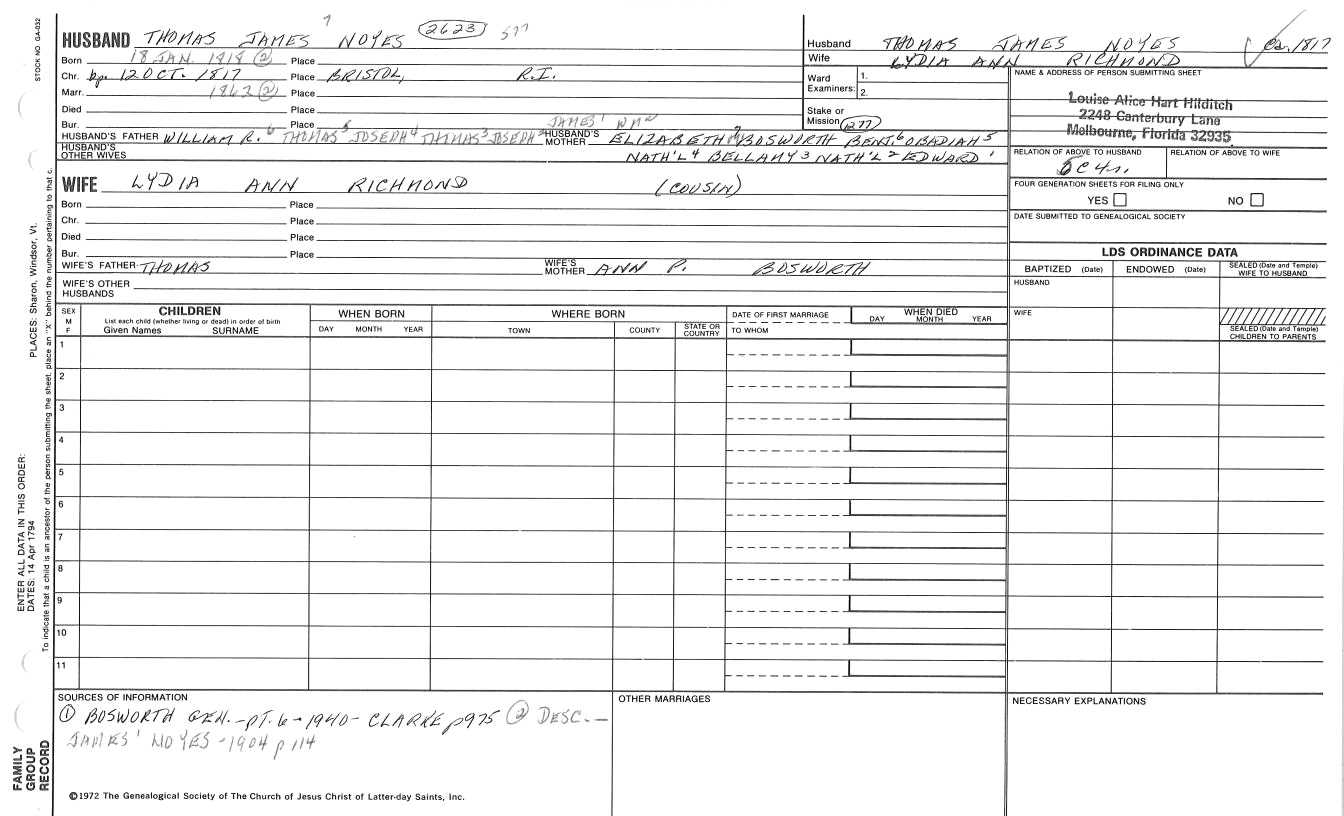 STOCK NO. GA-032
HUSBAND THOMAS JAMES 7 NOYES 2623 577
Born 18 JAN. 1818 (2) Place
Chr. bp. 12 OCT. 1817 Place BRISTOL, R.I.
Marr. 1862 (2) Place
Died Place
Bur. Place JAMES' WM 2
HUSBAND'S FATHER WILLIAM R. 6 THOMAS 5 JOSEPH 4 THOMAS 3 JOSEPH HUSBAND'S MOTHER ELIZABETH 7 BOSWORTH BENJ. 6 OBADIAH 5
HUSBAND'S OTHER WIVES NATH'L 4 BELLAMY 3 NATH'L 2 EDWARD 1
Husband THOMAS JAMES NOYES ca. 1817
Wife LYDIA ANN RICHMOND
Ward Examiners: 1.
2.
Stake or Mission 277
NAME & ADDRESS OF PERSON SUBMITTING SHEET
Louise Alice Hart Hilditch
2248 Canterbury Lane
Melbourne, Florida 32935
RELATION OF ABOVE TO HUSBAND RELATION OF ABOVE TO WIFE
5C4r.
FOUR GENERATION SHEETS FOR FILING ONLY
YES NO
DATE SUBMITTED TO GENEALOGICAL SOCIETY
WIFE LYDIA ANN RICHMOND (COUSIN)
Born Place
Chr. Place
Died Place
Bur. Place
WIFE'S FATHER THOMAS WIFE'S MOTHER ANN P. BOSWORTH
WIFE'S OTHER HUSBANDS
LDS ORDINANCE DATA
BAPTIZED (Date) ENDOWED (Date) SEALED (Date and Temple) WIFE TO HUSBAND
HUSBAND
WIFE
SEALED (Date and Temple) CHILDREN TO PARENTS
SEX M F
CHILDREN
List each child (whether living or dead) in order of birth
Given Names SURNAME
WHEN BORN
DAY MONTH YEAR
WHERE BORN
TOWN COUNTY STATE OR COUNTRY
DATE OF FIRST MARRIAGE
TO WHOM
WHEN DIED
DAY MONTH YEAR
1
2
3
4
5
6
7
8
9
10
11
SOURCES OF INFORMATION
(1) BOSWORTH GEN. - PT. 6 - 1940 - CLARKE p975 (2) DESC. -
JAMES' NOYES - 1904 p 114
OTHER MARRIAGES
NECESSARY EXPLANATIONS
©1972 The Genealogical Society of The Church of Jesus Christ of Latter-day Saints, Inc.
ENTER ALL DATA IN THIS ORDER:
DATES: 14 Apr 1794
PLACES: Sharon, Windsor, Vt.
To indicate that a child is an ancestor of the person submitting the sheet, place an "X" behind the number pertaining to that c.
FAMILY
GROUP
RECORD